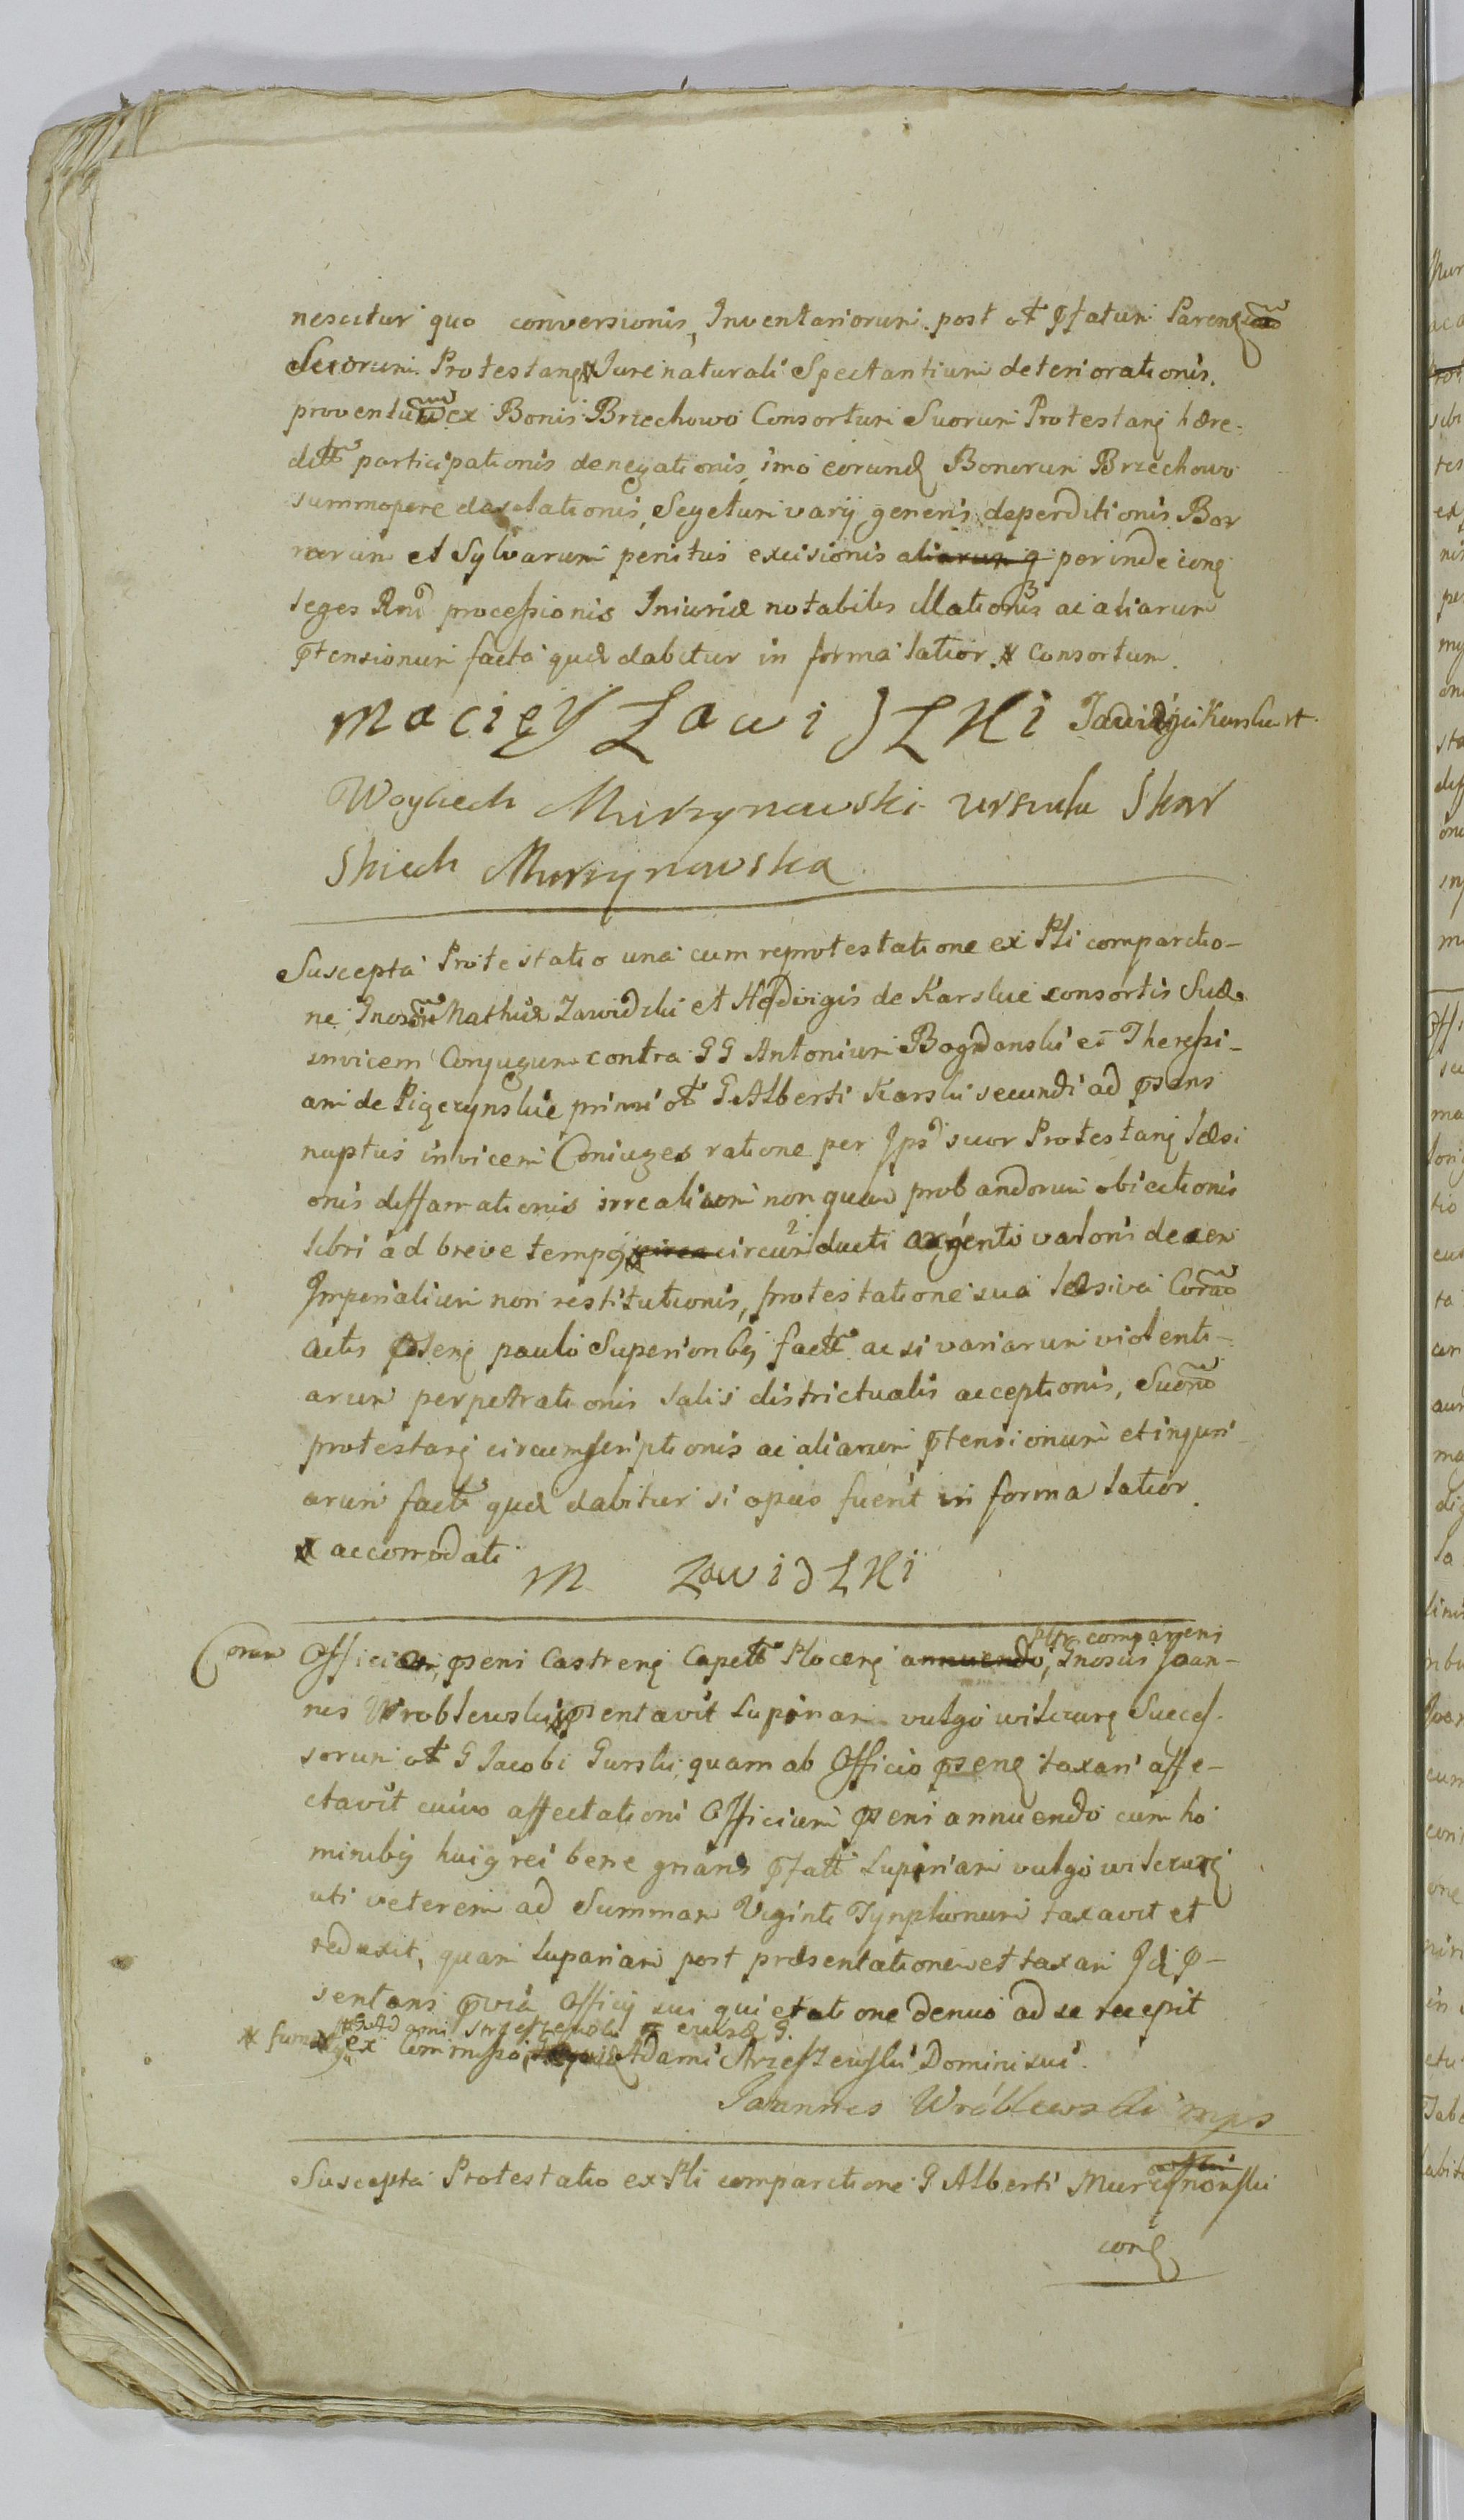 nescitur quo conversionis, Inventariorum post ol ptatum Pareng
Suorum Protestang Jure naturali Spectantium deteriorationis,
proventuum ex Bonis Brzechowo Consortum Suorum Protestang hære-
ditt participationis denegationis, imo eorund Bonorum Brzechowo
summopere desolationis, Segetum varij generis deperditionis Bor
rarum et Sylvarum penitus excisionis aliarum q perinde cong
leges Rnd processionis Iniuriæ notabilis illationis ac aliarum
ptensionum facta quæ dabitur in forma latior. x Consortum.
Macięy Zawidzki Jadwiga Karska
Woyciech Murzynowski Urszula Skar
Skich Murzynowska
Suscepta Protestatio una cum reprotestatione ex Pli comparitio-
ne Gnosor Mathiæ Zawidzki et Hedvigis de Karskie consortis Suæ
invicem Conjugum contra GG Antonium Bogdanski et Theressi-
am de Pigczynskie primi ol G Alberti Karski secundi ad psens
nuptus invicem Coniuges ratione per Ipsd suor Protestang læsi
onis diffamationis irrealium non quam probandorum obiectionis
libri ad breve tempq x circa circum ducti argenti valoris decem
Imperialium non restitutionis, protestatione sua læsiva Coram
actis pseng paulo Superioribq factæ ac si variarum violenti-
arum perpetrationis salis districtualis acceptionis, Suorum
protestang circumscriptionis ac aliarum ptensionum et injuri-
arum fact quæ dabitur si opus fuerit in forma latior.
x accomodati
M Zawidzki
Pltr comparens
Coram Officio pseni Castreng Capett Ploceng annuendo, Gnosus Joan-
nes Wroblewski psentavit Lupinam vulgo wilczurę Succes-
sorum ol G Jacobi Gurski, quam ab Officio pseng taxari affe-
ctavit cuivo affectationi Officium pseni annuendo cum ho
minibq huiq rei bene gnaris ptatt Lupinam vulgo wilczurę
uti veterem ad Summam Viginti Tynphonum taxavit et
reduxit, quam Lupariam post præsentationem et taxam Id p-
sentans prvia Officij sui quietatione denuo ad se recepit
ex Commisso Adami Strzeszewski Domini sui.
Joannes Wróblewski mps
Suscepta Protestatio ex Pli comparitione G Alberti Murzynowski
cong